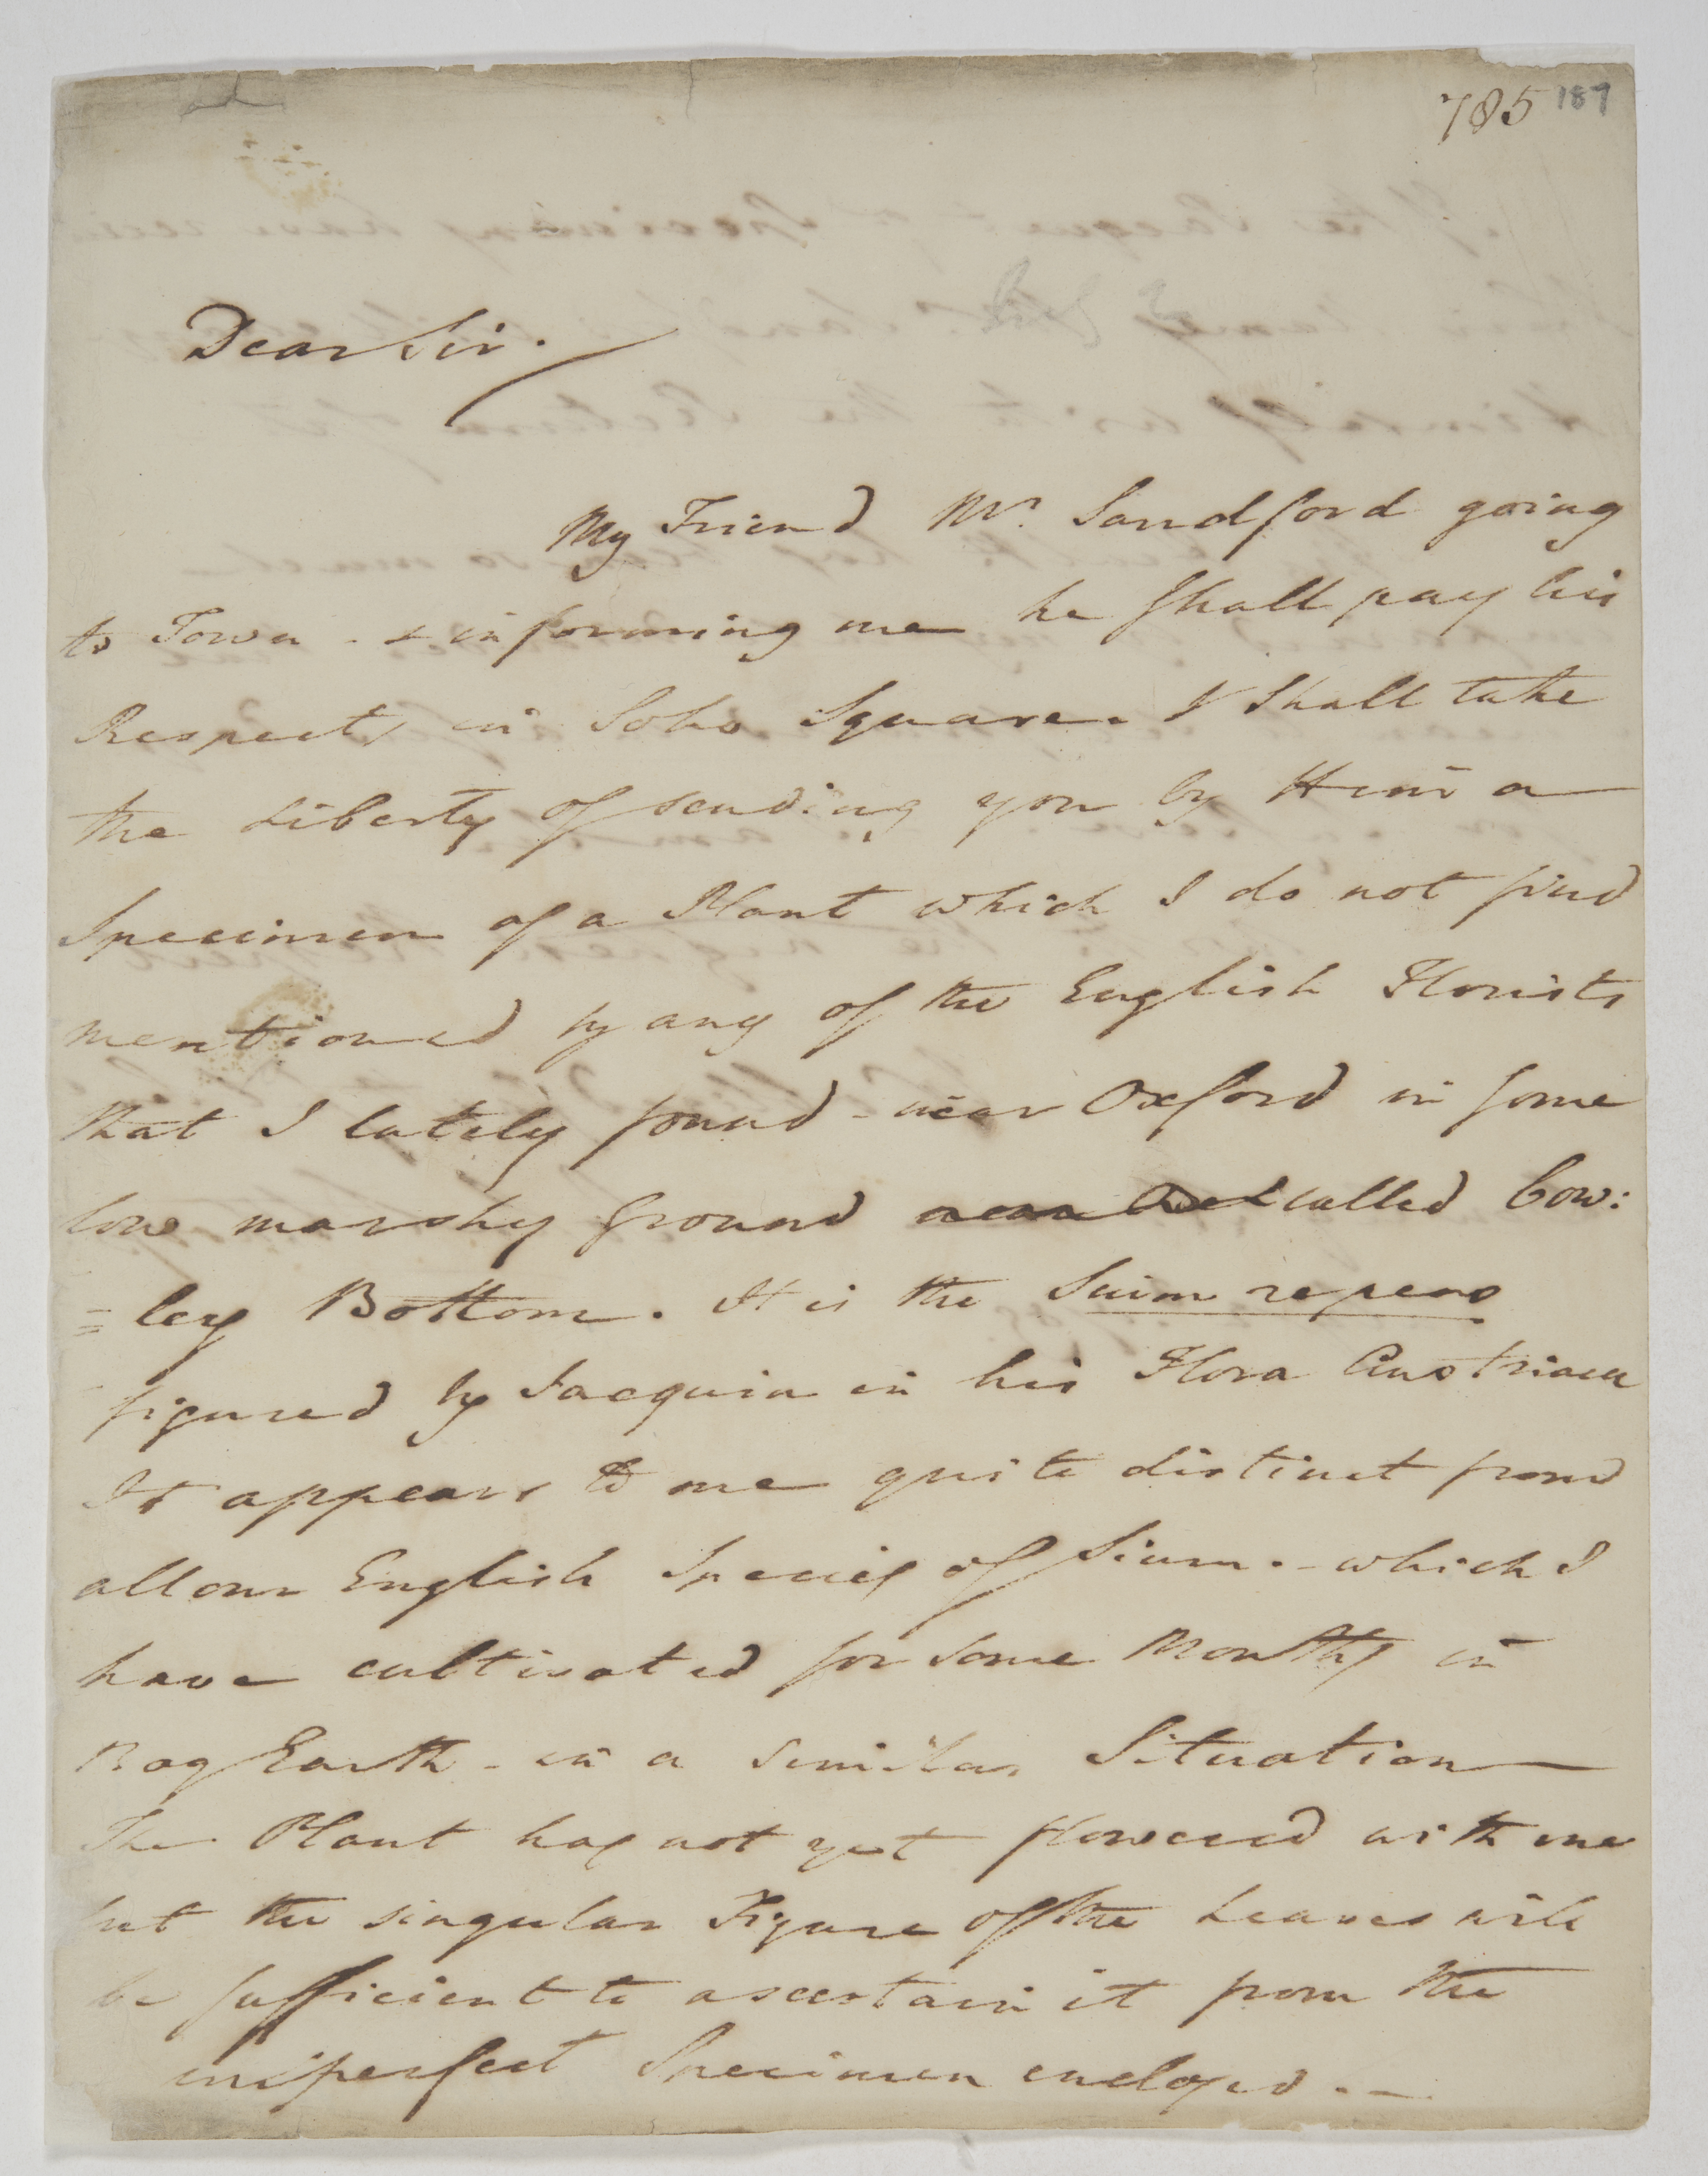 785 187
Dear Sir.
My Friend Mr. Sandford going
to Town - & informing me he shall pay his
Respects in Soho Square. I shall take
the Liberty of sending you by Him a
Specimen of a Plant which I do not find
mentioned by any of the English Florists
that I lately found - near Oxford in some
low marshy Ground called Cow:
=ley Bottom. It is the Sium repens
figured by Jacquin in his Flora Austriaca
It appears to me quite distinct from
all our English Species of Sium. - which I
have cultivated for some Months in
Bog Earth - in a similar Situation
The Plant has not yet flowered with me
but the singular Figure of the Leaves will
be sufficient to ascertain it from the
imperfect Specimen enclosed. -